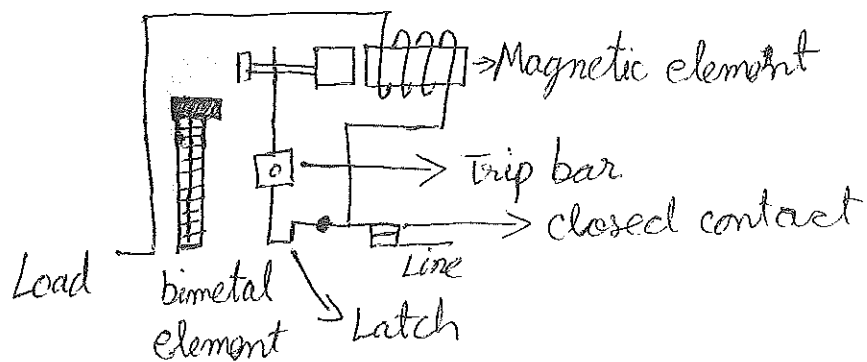 Magnetic element
Trip bar.
closed contact
Line
Load
bimetal
element
Latch